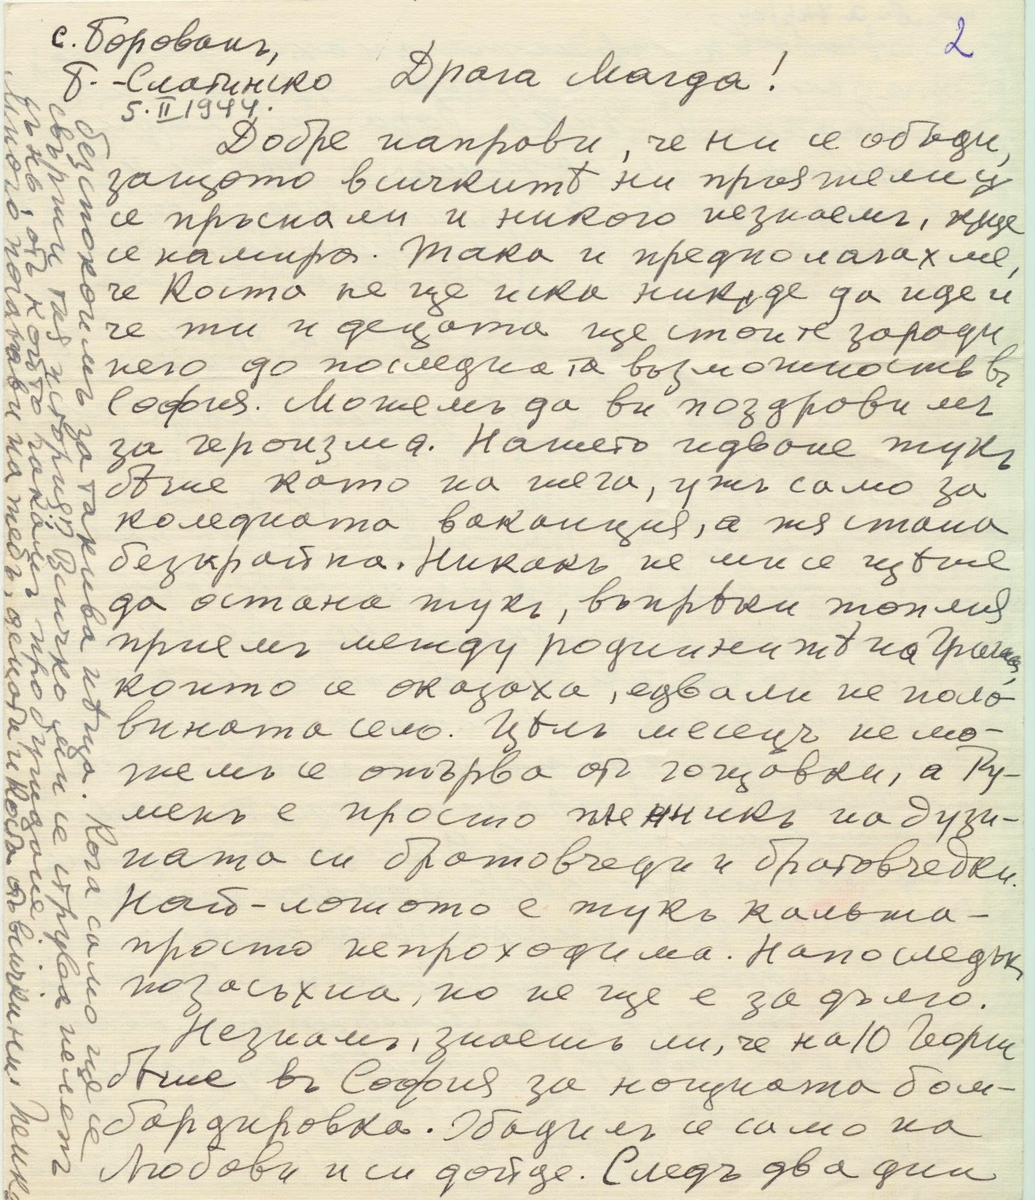 2
с. Борованъ,
Б.-Слатинско
5.II 1944.
Драга Магда!
Добре направи, че ни се обади,
защото всичкитѣ ни приятели
се пръснали и никого незнаемъ, къде
се намира. Така и предполагахме,
че Коста не ще иска никѫде да иде и
че ти и децата ще стоите заради
него до последната възможность въ
София. Можемъ да ви поздравимъ
за героизма. Нашето идване тукъ
бѣше като на шега, ужъ само за
коледната ваканция, а тя стана
безкрайна. Никакъ не ми се щѣше
да остана тукъ, въпрѣки топлия
приемъ между роднинитѣ на
които се оказаха, едвали не поло-
вината село. Цѣлъ месецъ не мо-
жемъ се отърва отъ гощавки, а Ру-
менъ е просто пленникъ на дузи-
ната си братовчеди и братовчедки.
Най-лошото е тукъ кальта-
просто непроходима. Напоследъкъ
позасъхна, но не ще е за дълго.
Незнамъ, знаешъ ли, че на 10 Георги
бѣше въ София за нощната бом-
бардировка. Обадилъ се само на
Любови и си дойде. Следъ два дни
безпокоимъ за такива нѣща. Кога само ще се
свърши тая история? Всичко ми се струва нелепъ
сънь, отъ който чакамъ пробуждане.
Много поздрави на тебъ, децата и Коста отъ всички ни Пенка